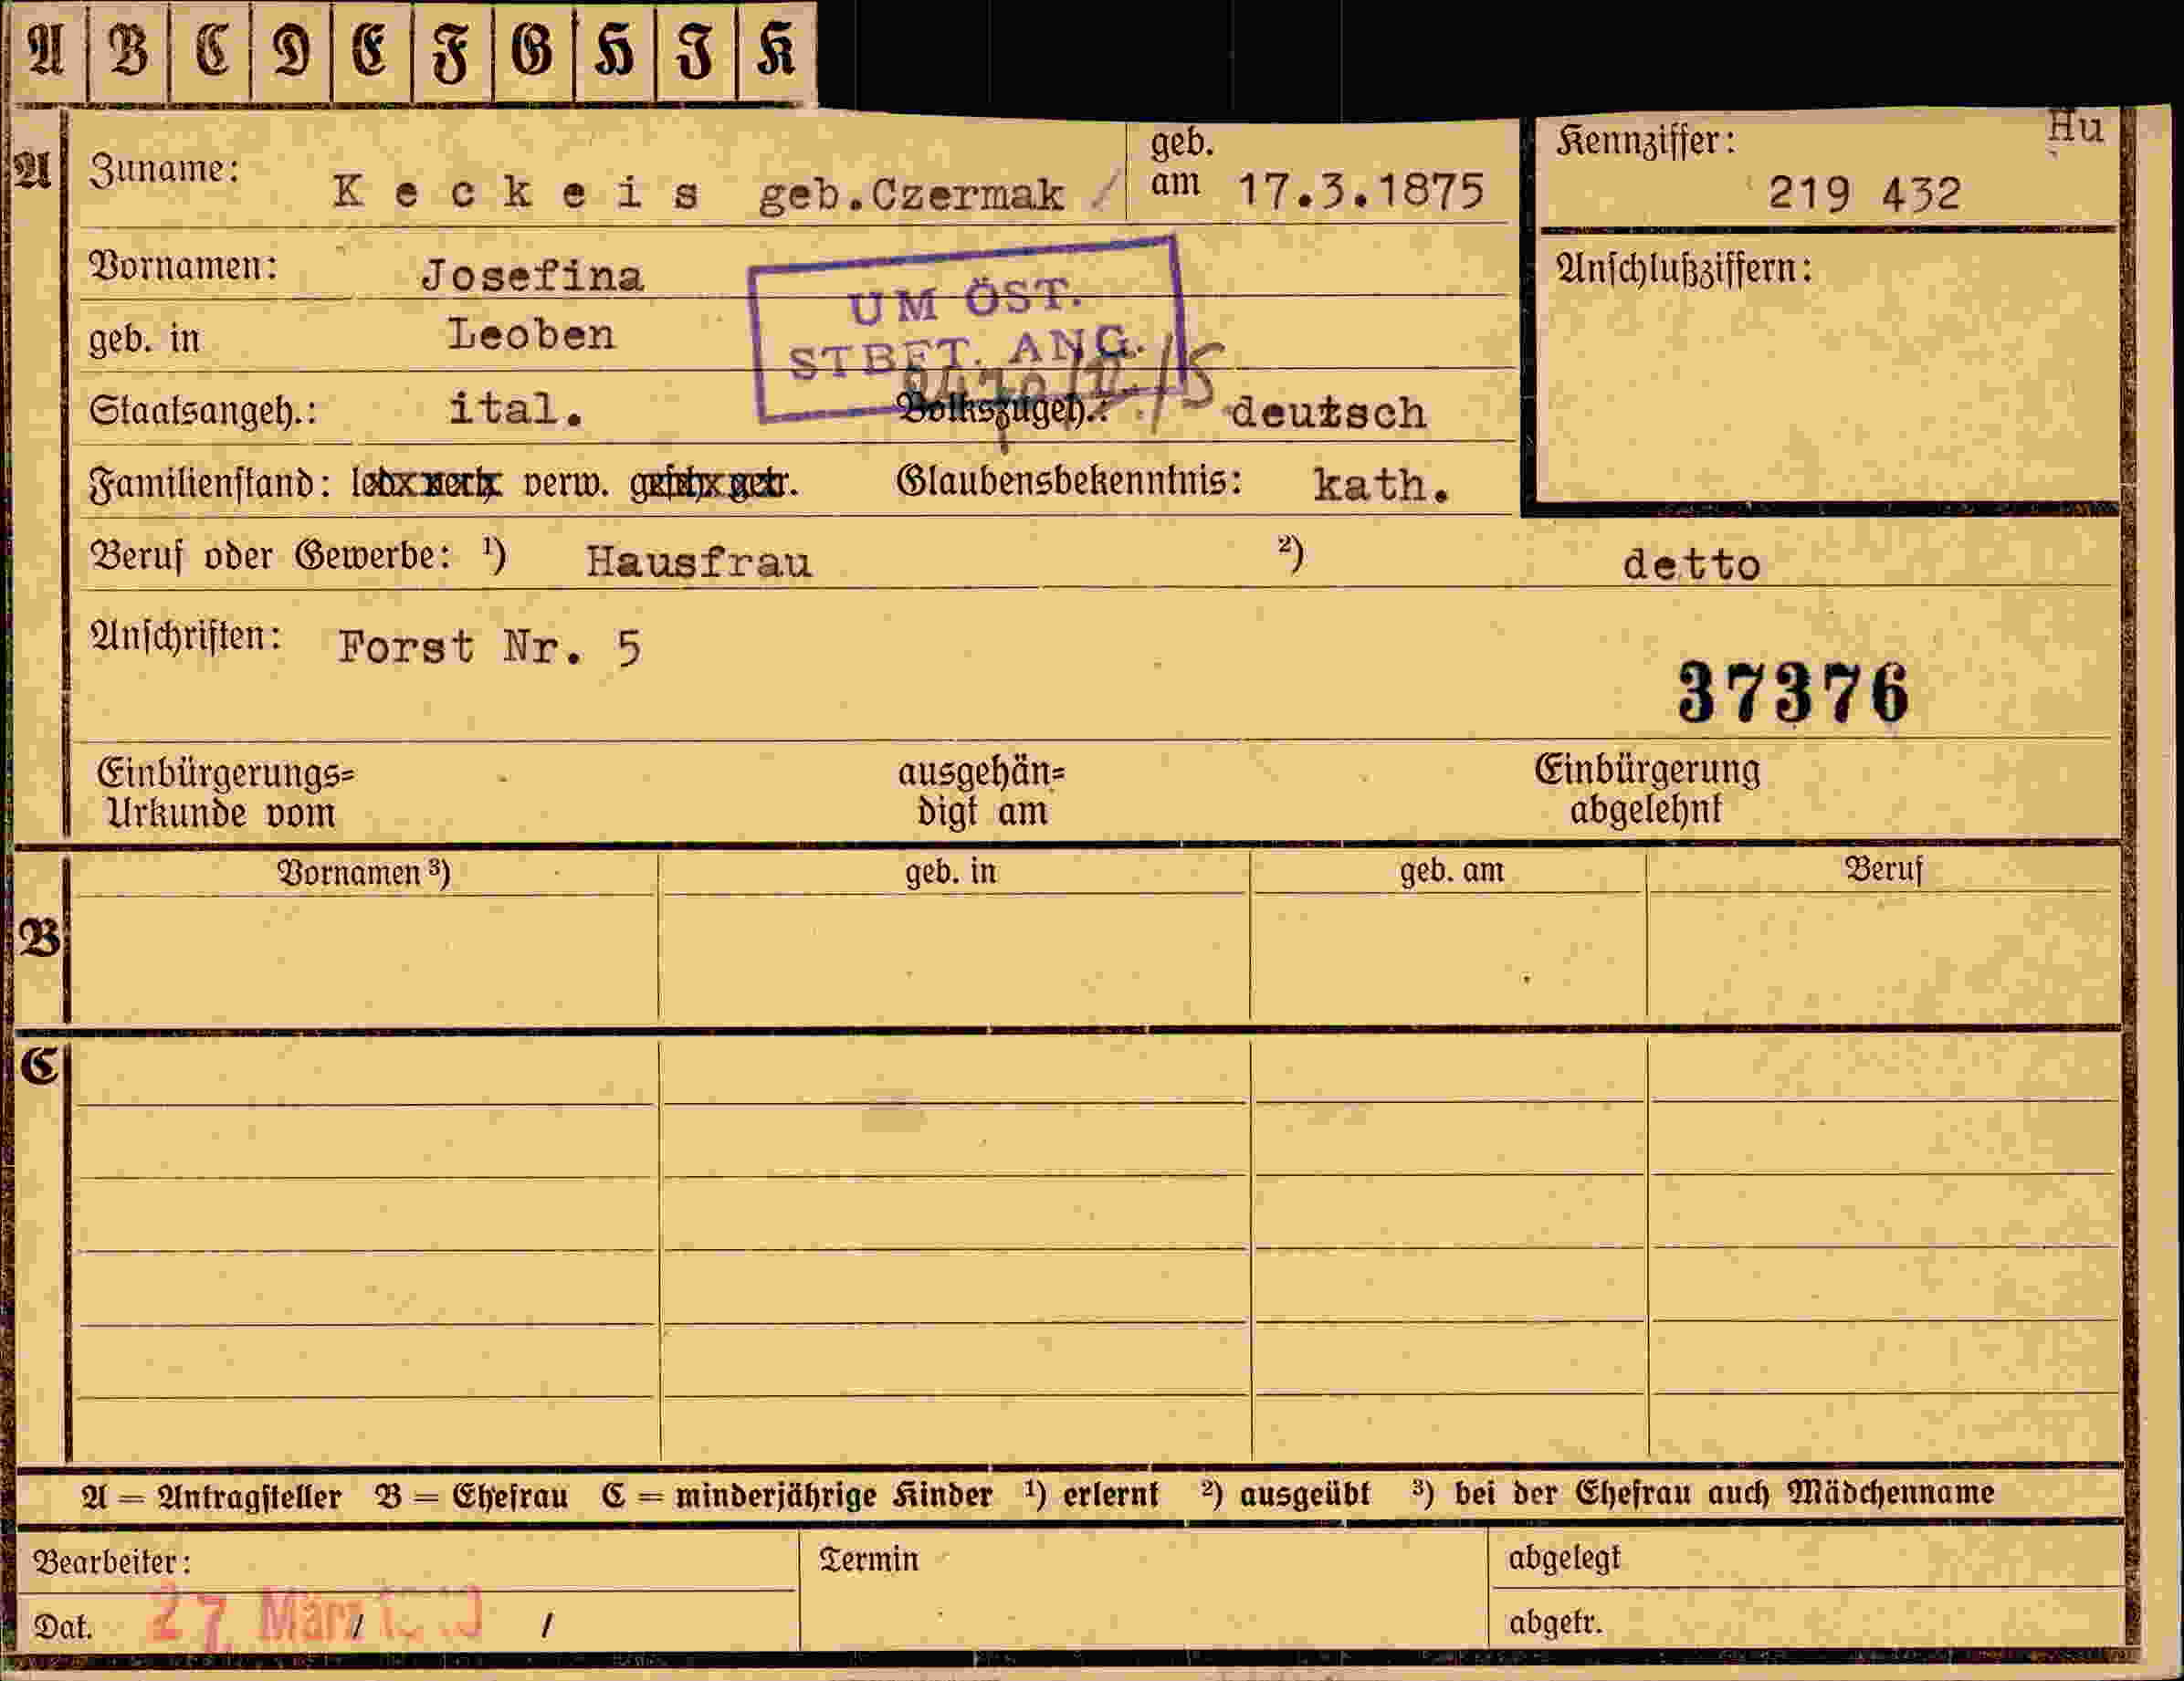 A B C D E F G H I K
Hu
A
Zuname: Keckeis geb.Czermak / geb. am 17.3.1875
Kennziffer: 219 432
Vornamen: Josefina
Anschlußziffern:
UM ÖST.
STBET. ANG.
geb. in Leoben
Staatsangeh.: ital. Volkszugeh.: deutsch
Familienstand: led. verh. verw. gesch. getr. Glaubensbekenntnis: kath.
Beruf oder Gewerbe: ¹) Hausfrau ²) detto
Anschriften: Forst Nr. 5
37376
Einbürgerungs=
Urkunde vom
ausgehän=
digt am
Einbürgerung
abgelehnt
Vornamen ³) geb. in geb. am Beruf
B
C
A = Antragsteller B = Ehefrau C = minderjährige Kinder ¹) erlernt ²) ausgeübt ³) bei der Ehefrau auch Mädchenname
Bearbeiter: Termin abgelegt
Dat. 27. März / / abgetr.